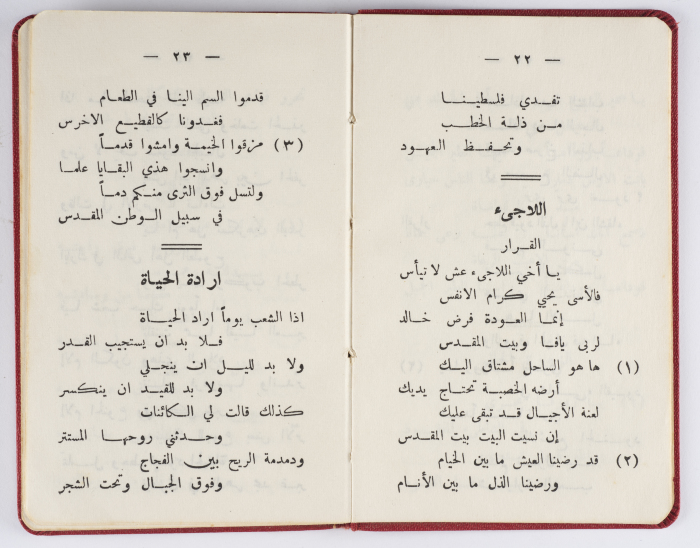 — ٢٢ —
تفدي فلسطينا
من ذلة الخطب
وتحفظ العهود
اللاجىء
القرار
يا أخي اللاجىء عش لا تيأس
فالأسى يحيي كرام الانفس
إنما العودة فرض خالد
لربى يافا وبيت المقدس
(١) ها هو الساحل مشتاق اليك
أرضه الخصبة تحتاج يديك
لعنة الأجيال قد تبقى عليك
إن نسيت البيت بيت المقدس
(٢) قد رضينا العيش ما بين الخيام
ورضينا الذل ما بين الأنام
— ٢٣ —
قدموا السم الينا في الطعام
فغدونا كالقطيع الاخرس
(٣) مزقوا الخيمة وامشوا قدماً
وانسجوا هذي البقايا علما
ولتسل فوق الثرى منكم دماً
في سبيل الوطن المقدس
ارادة الحياة
اذا الشعب يوماً اراد الحياة
فلا بد ان يستجيب القدر
ولا بد لليل ان ينجلي
ولا بد للقيد ان ينكسر
كذلك قالت لي الكائنات
وحدثني روحها المستتر
ودمدمة الريح بين الفجاج
وفوق الجبال وتحت الشجر